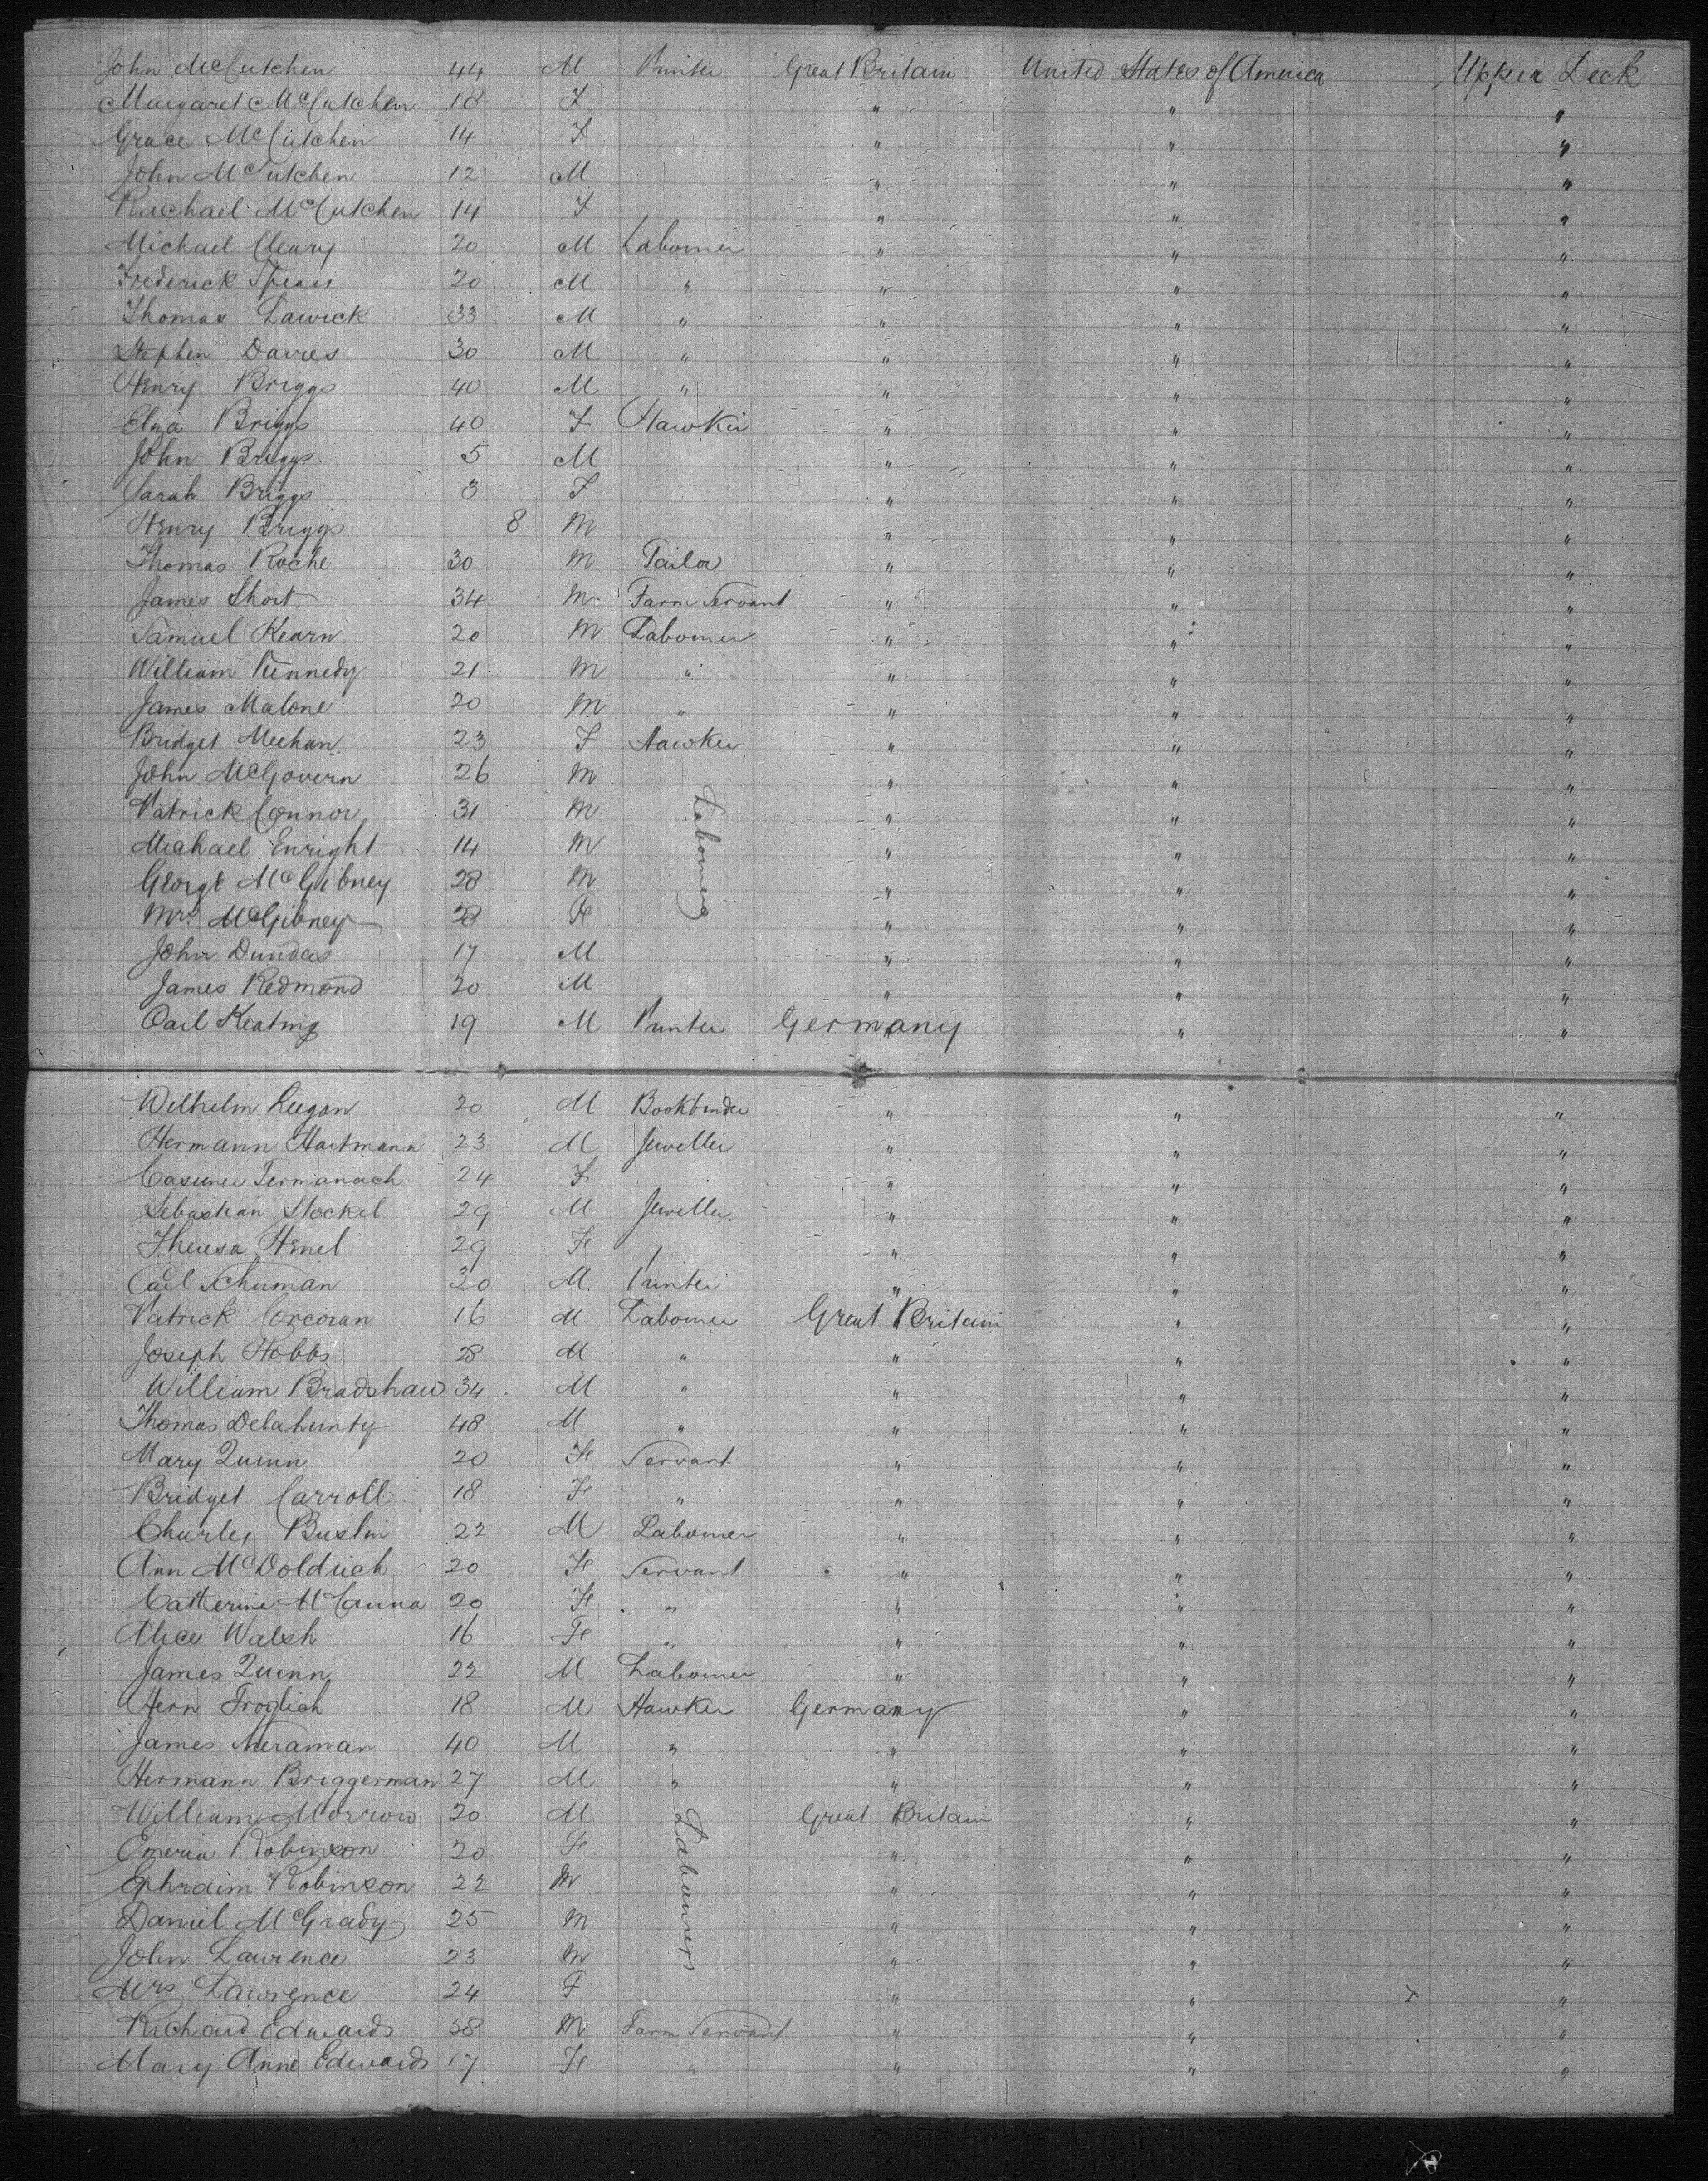 John McCutchen 44 M Printer Great Britain United States of America Upper Deck
Margaret McCutchen 18 F " " "
Grace McCutchen 14 F " " "
John McCutchen 12 M " " "
Rachael McCutchen 14 F " " "
Michael Cleary 20 M Labourer " " "
Frederick Spears 20 M " " " "
Thomas Lawick 33 M " " " "
Stephen Davies 30 M " " " "
Henry Briggs 40 M " " " "
Eliza Briggs 40 F Hawker " " "
John Briggs 5 M " " "
Sarah Briggs 3 F " " "
Henry Briggs 8 M " " "
Thomas Roche 30 M Tailor " " "
James Short 34 M Farm Servant " " "
Samuel Kearn 20 M Labourer " " "
William Kennedy 21 M " " " "
James Malone 20 M " " " "
Bridget Meehan 23 F Hawker " " "
John McGovern 26 M " " "
Patrick Connor 31 M Labourers " " "
Michael Enright 14 M " " "
George McGibney 28 M " " "
Mrs McGibney 28 F " " "
John Dundas 17 M " " "
James Redmond 20 M " " "
Carl Keating 19 M Printer Germany " "
Wilhelm Leegan 20 M Bookbinder " " "
Hermann Hartmann 23 M Jeweller " " "
Casimer Termanach 24 F " " "
Sebastian Stockel 29 M Jeweller " " "
Theresa Henel 29 F " " "
Carl Schuman 30 M Printer " " "
Patrick Corcoran 16 M Labourer Great Britain " "
Joseph Hobbs 28 M " " " "
William Bradshaw 34 M " " " "
Thomas Delahunty 48 M " " " "
Mary Quinn 20 F Servant " " "
Bridget Carroll 18 F " " " "
Charley Buslin 22 M Labourer " " "
Ann McDoldrich 20 F Servant " " "
Catherine McCanna 20 F " " " "
Alice Walsh 16 F " " " "
James Quinn 22 M Labourer " " "
Hern Froglich 18 M Hawker Germany " "
James Meraman 40 M " " " "
Hermann Briggerman 27 M " " " "
William Morrow 20 M Labourers Great Britain " "
Robinson 20 F " " "
Ephraim Robinson 22 M " " "
Daniel McGrady 25 M " " "
John Lawrence 23 M " " "
Mrs Lawrence 24 F " " "
Richard Edwards 38 M Farm Servant " " "
Mary Anne Edwards 17 F " " " "